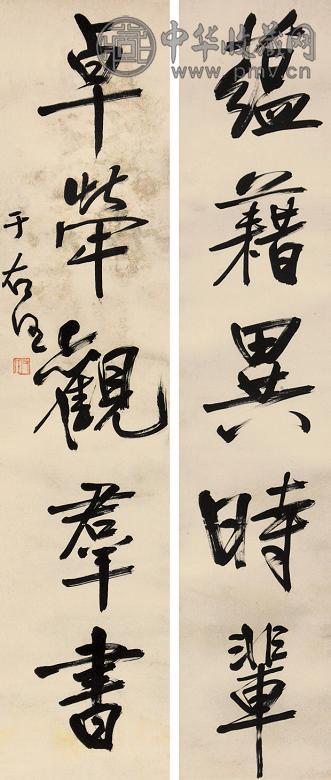 蘊藉異時輩
卓犖觀羣書
于右任
中华收藏网
www.pmv.cn